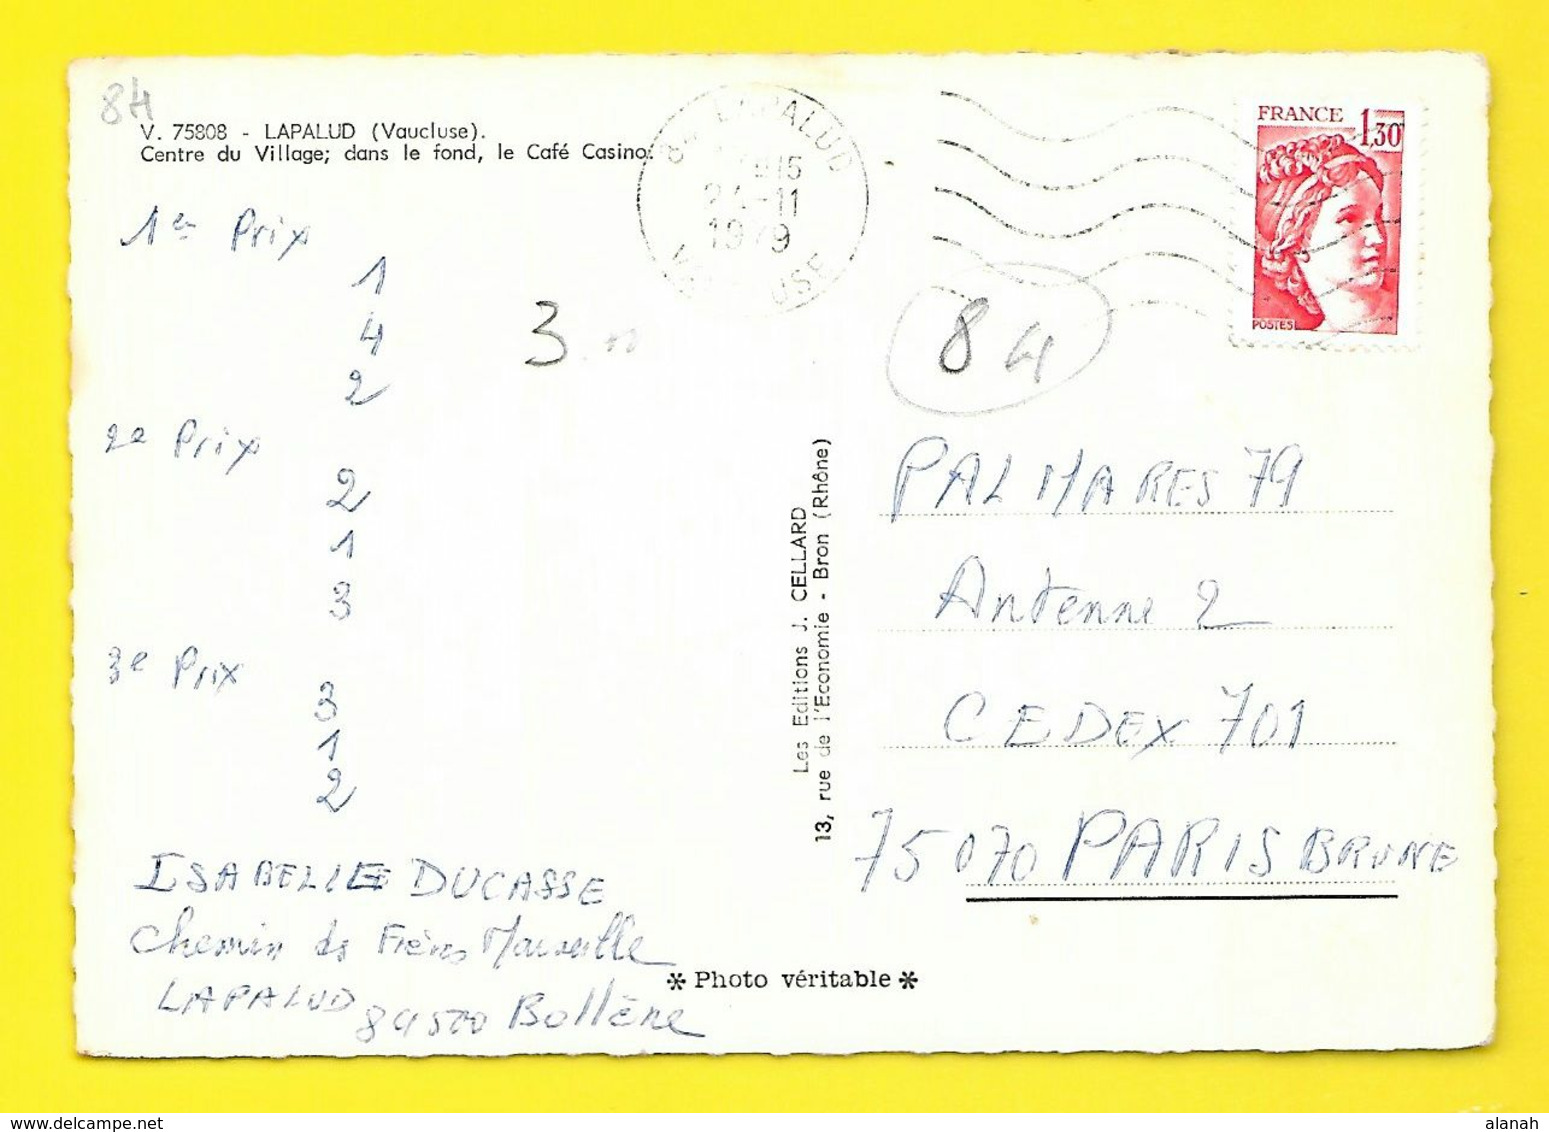 84
V. 75808 - LAPALUD (Vaucluse).
Centre du Village; dans le fond, le Café Casino.
84 LAPALUD
15
24-11
1979
VAUCLUSE
FRANCE
1,30
POSTES
1er Prix
1
4
2
3
84
2e Prix
2
1
3
3e Prix
3
1
2
Les Editions J. CELLARD
13, rue de l'Economie - Bron (Rhône)
PALMARES 79
Antenne 2
CEDEX 701
75070 PARIS BRUNE
ISABELLE DUCASSE
Chemin des Frères Marseille
LAPALUD
84500 Bollène
* Photo véritable *
delcampe.net
alanah